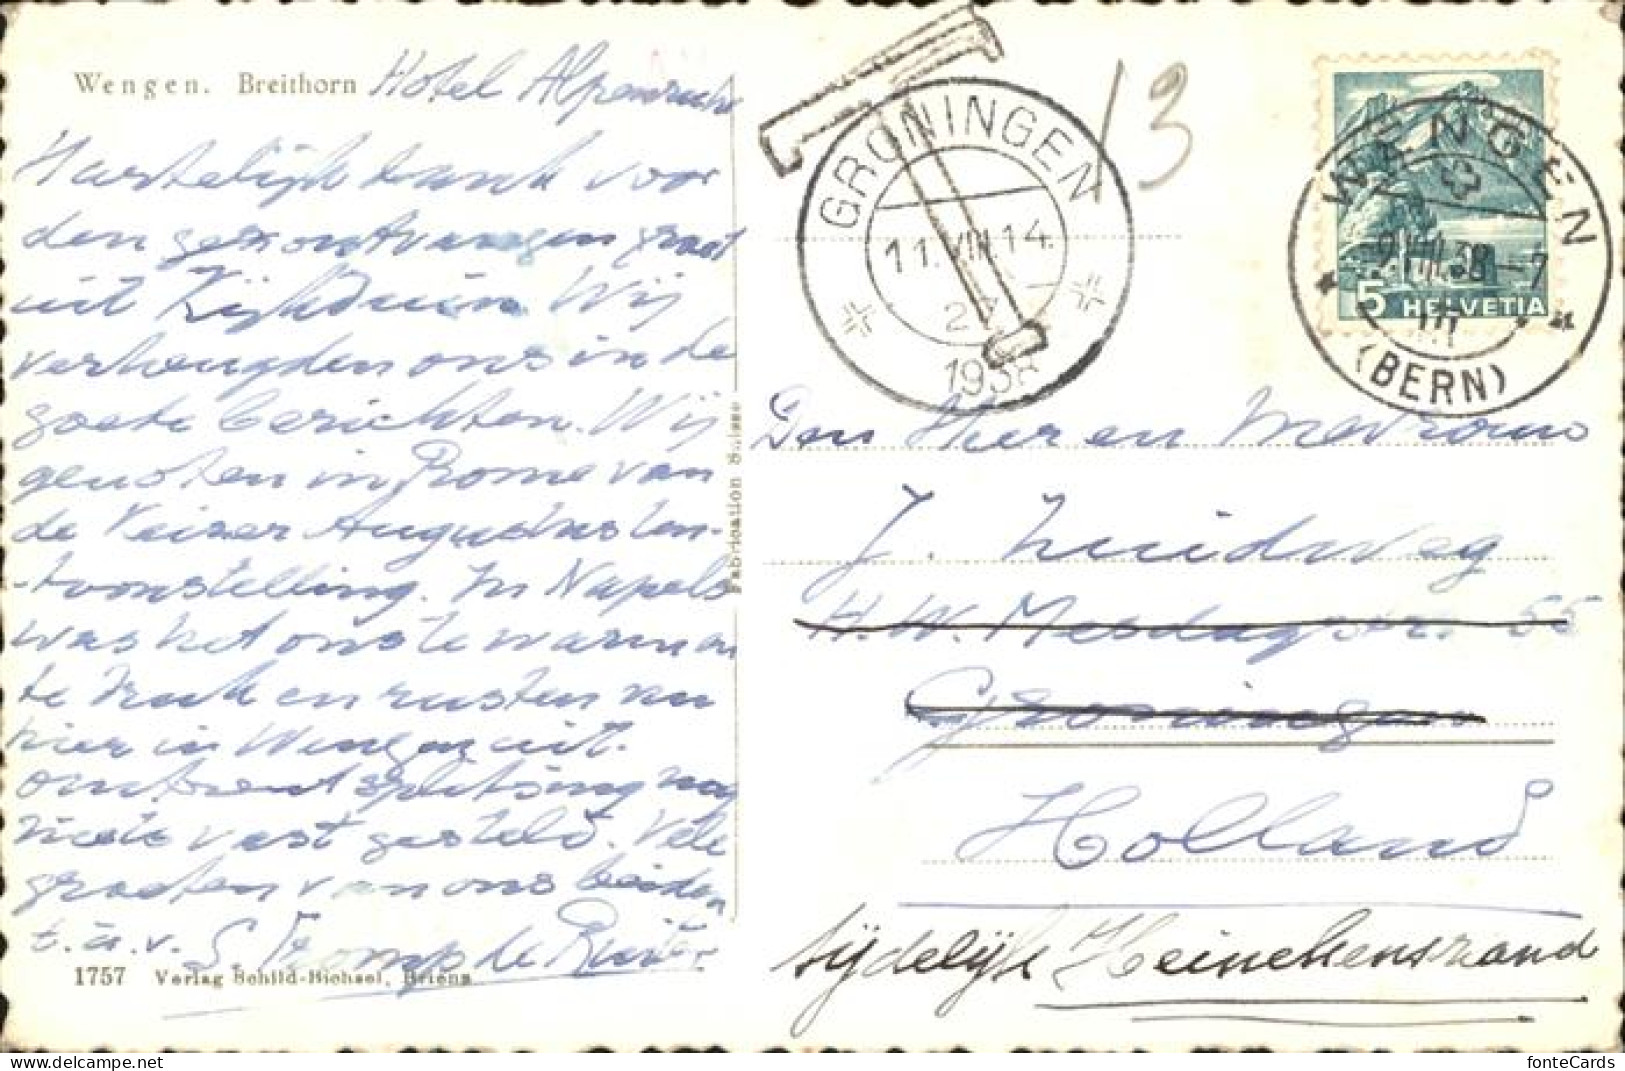 Wengen. Breithorn Hotel Alpenruhe
Hartelijk dank voor
den gezontvangen graat
uit Kijkduin. Wij
verheugden ons in de
goede berichten. Wij
genoten in Rome van
de Keizer Augustus ten-
-toonstelling. In Napels
was het ons te warm om
te druk en rusten nu
hier in Wengen uit.
omtrent splitsing nog
niets vast gesteld. Vele
groeten van ons beiden
t. à. v. S. Tromp de Ruiter
1757 Verlag Schild-Bichsel, Brienz
Fabrication Suisse
T
13
GRONINGEN
11.VIII.14
2
1938
WENGEN
-9.VIII.38-7
(BERN)
5 HELVETIA
Den Heer en Mevrouw
J. Zuidweg
H. W. Mesdagstr. 55
Groningen
Holland
tijdelijk Heinekensrand
fonteCards